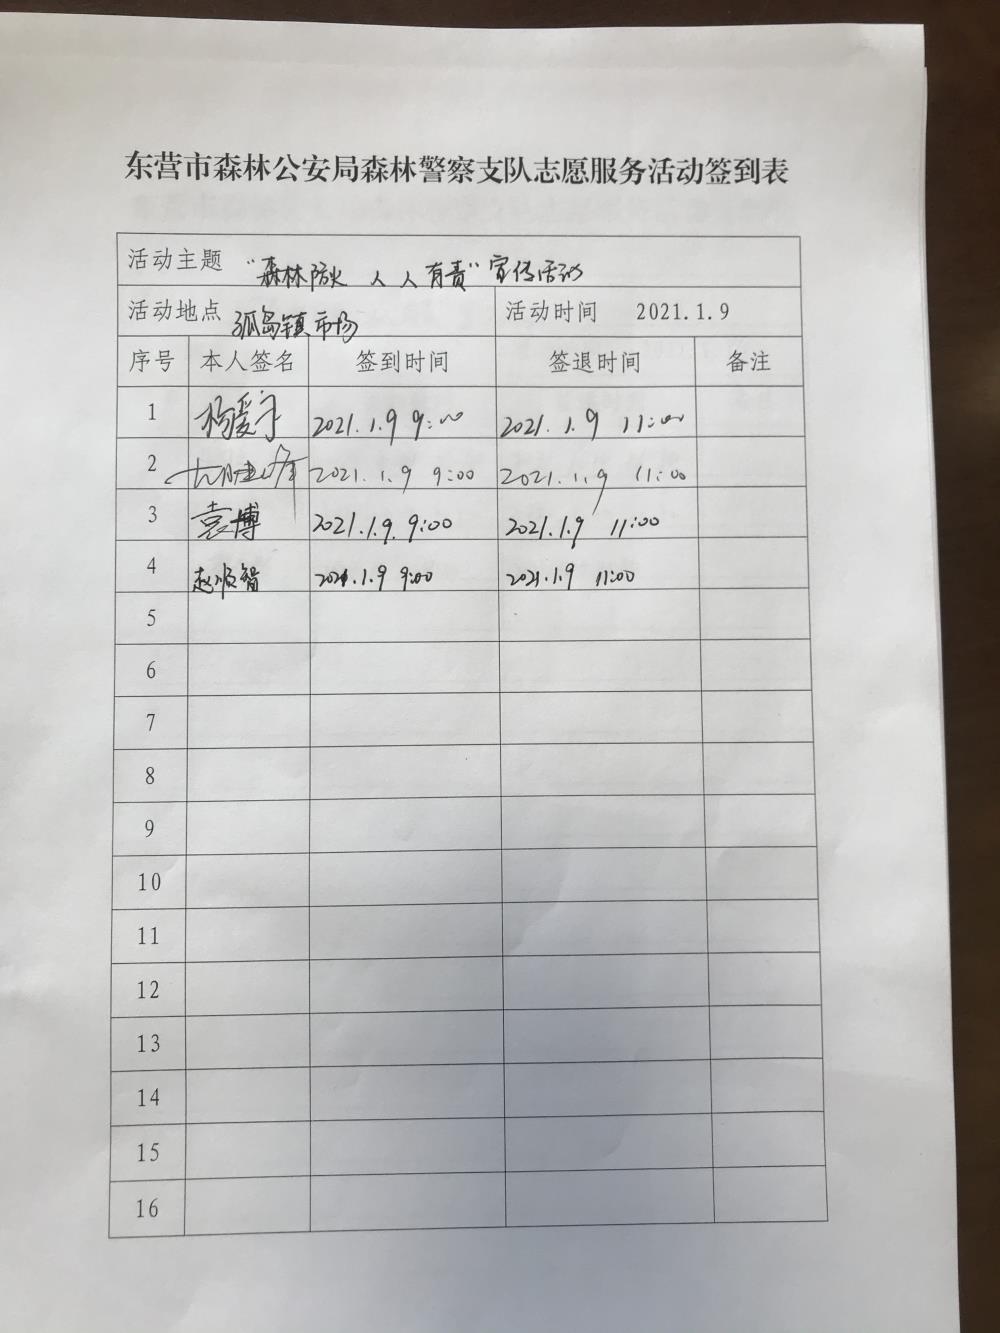 东营市森林公安局森林警察支队志愿服务活动签到表
活动主题 “森林防火 人人有责”宣传活动
活动地点 孤岛镇市场 活动时间 2021.1.9
序号 本人签名 签到时间 签退时间 备注
1 2021.1.9 9:00 2021.1.9 11:00
2 2021.1.9 9:00 2021.1.9 11:00
3 袁博 2021.1.9. 9:00 2021.1.9 11:00
4 赵顺智 2021.1.9 9:00 2021.1.9 11:00
5
6
7
8
9
10
11
12
13
14
15
16